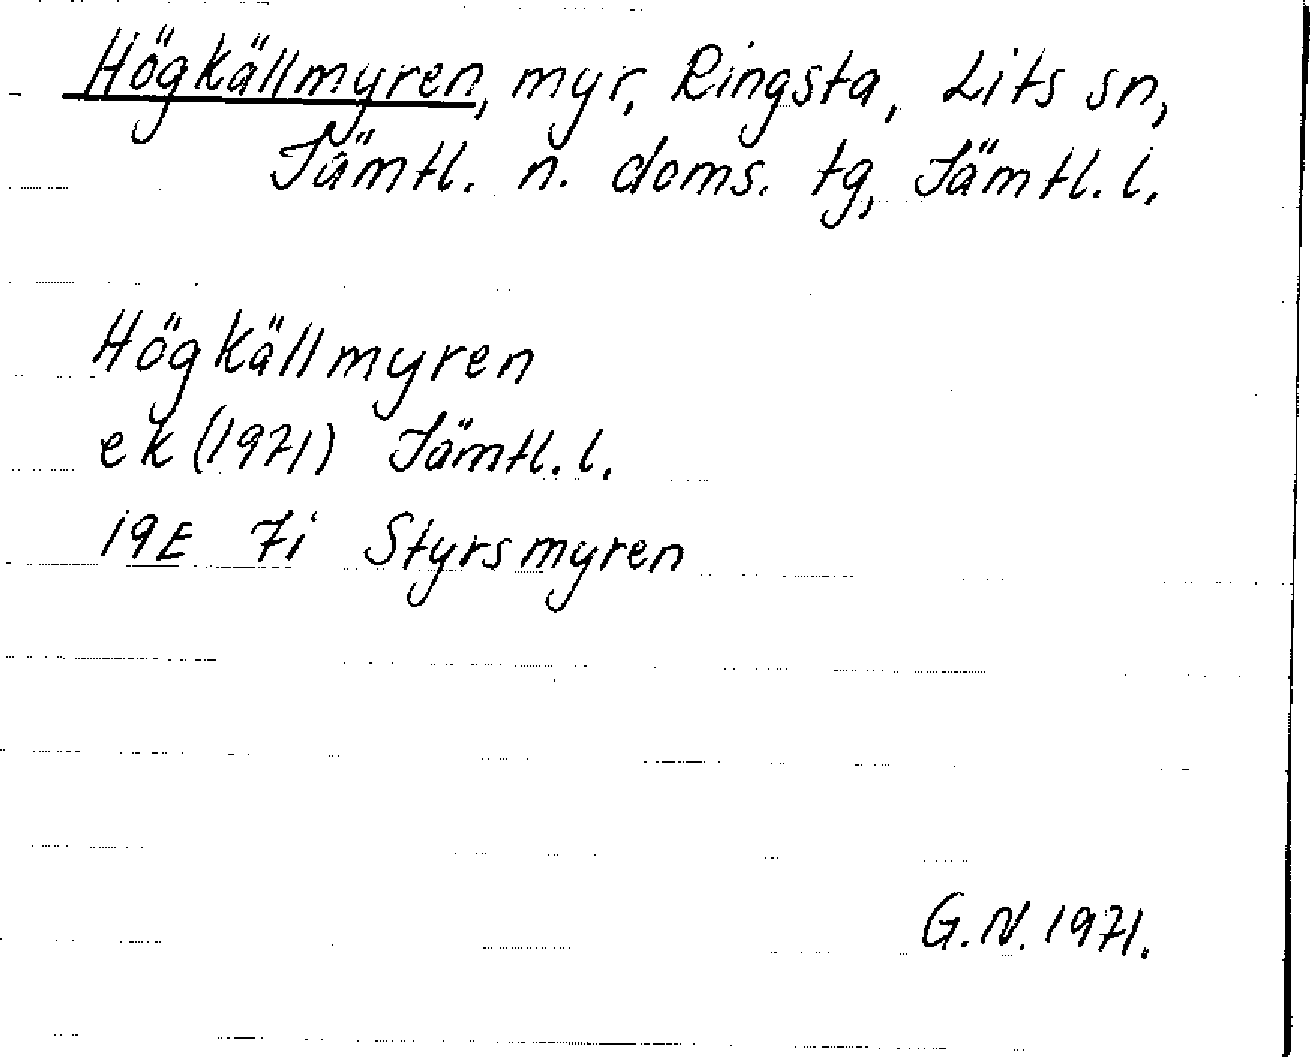 Högkällmyren, myr, Ringsta, Lits sn,
Jämtl. n. doms. tg, Jämtl. l.
Högkällmyren
ek (1971) Jämtl. l.
19E 7i Styrsmyren
G.N. 1971.